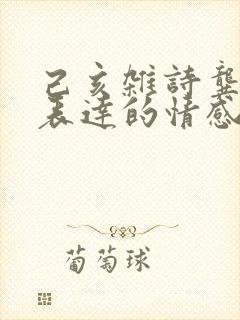 己亥雜詩龔
表達的情感
葡萄球